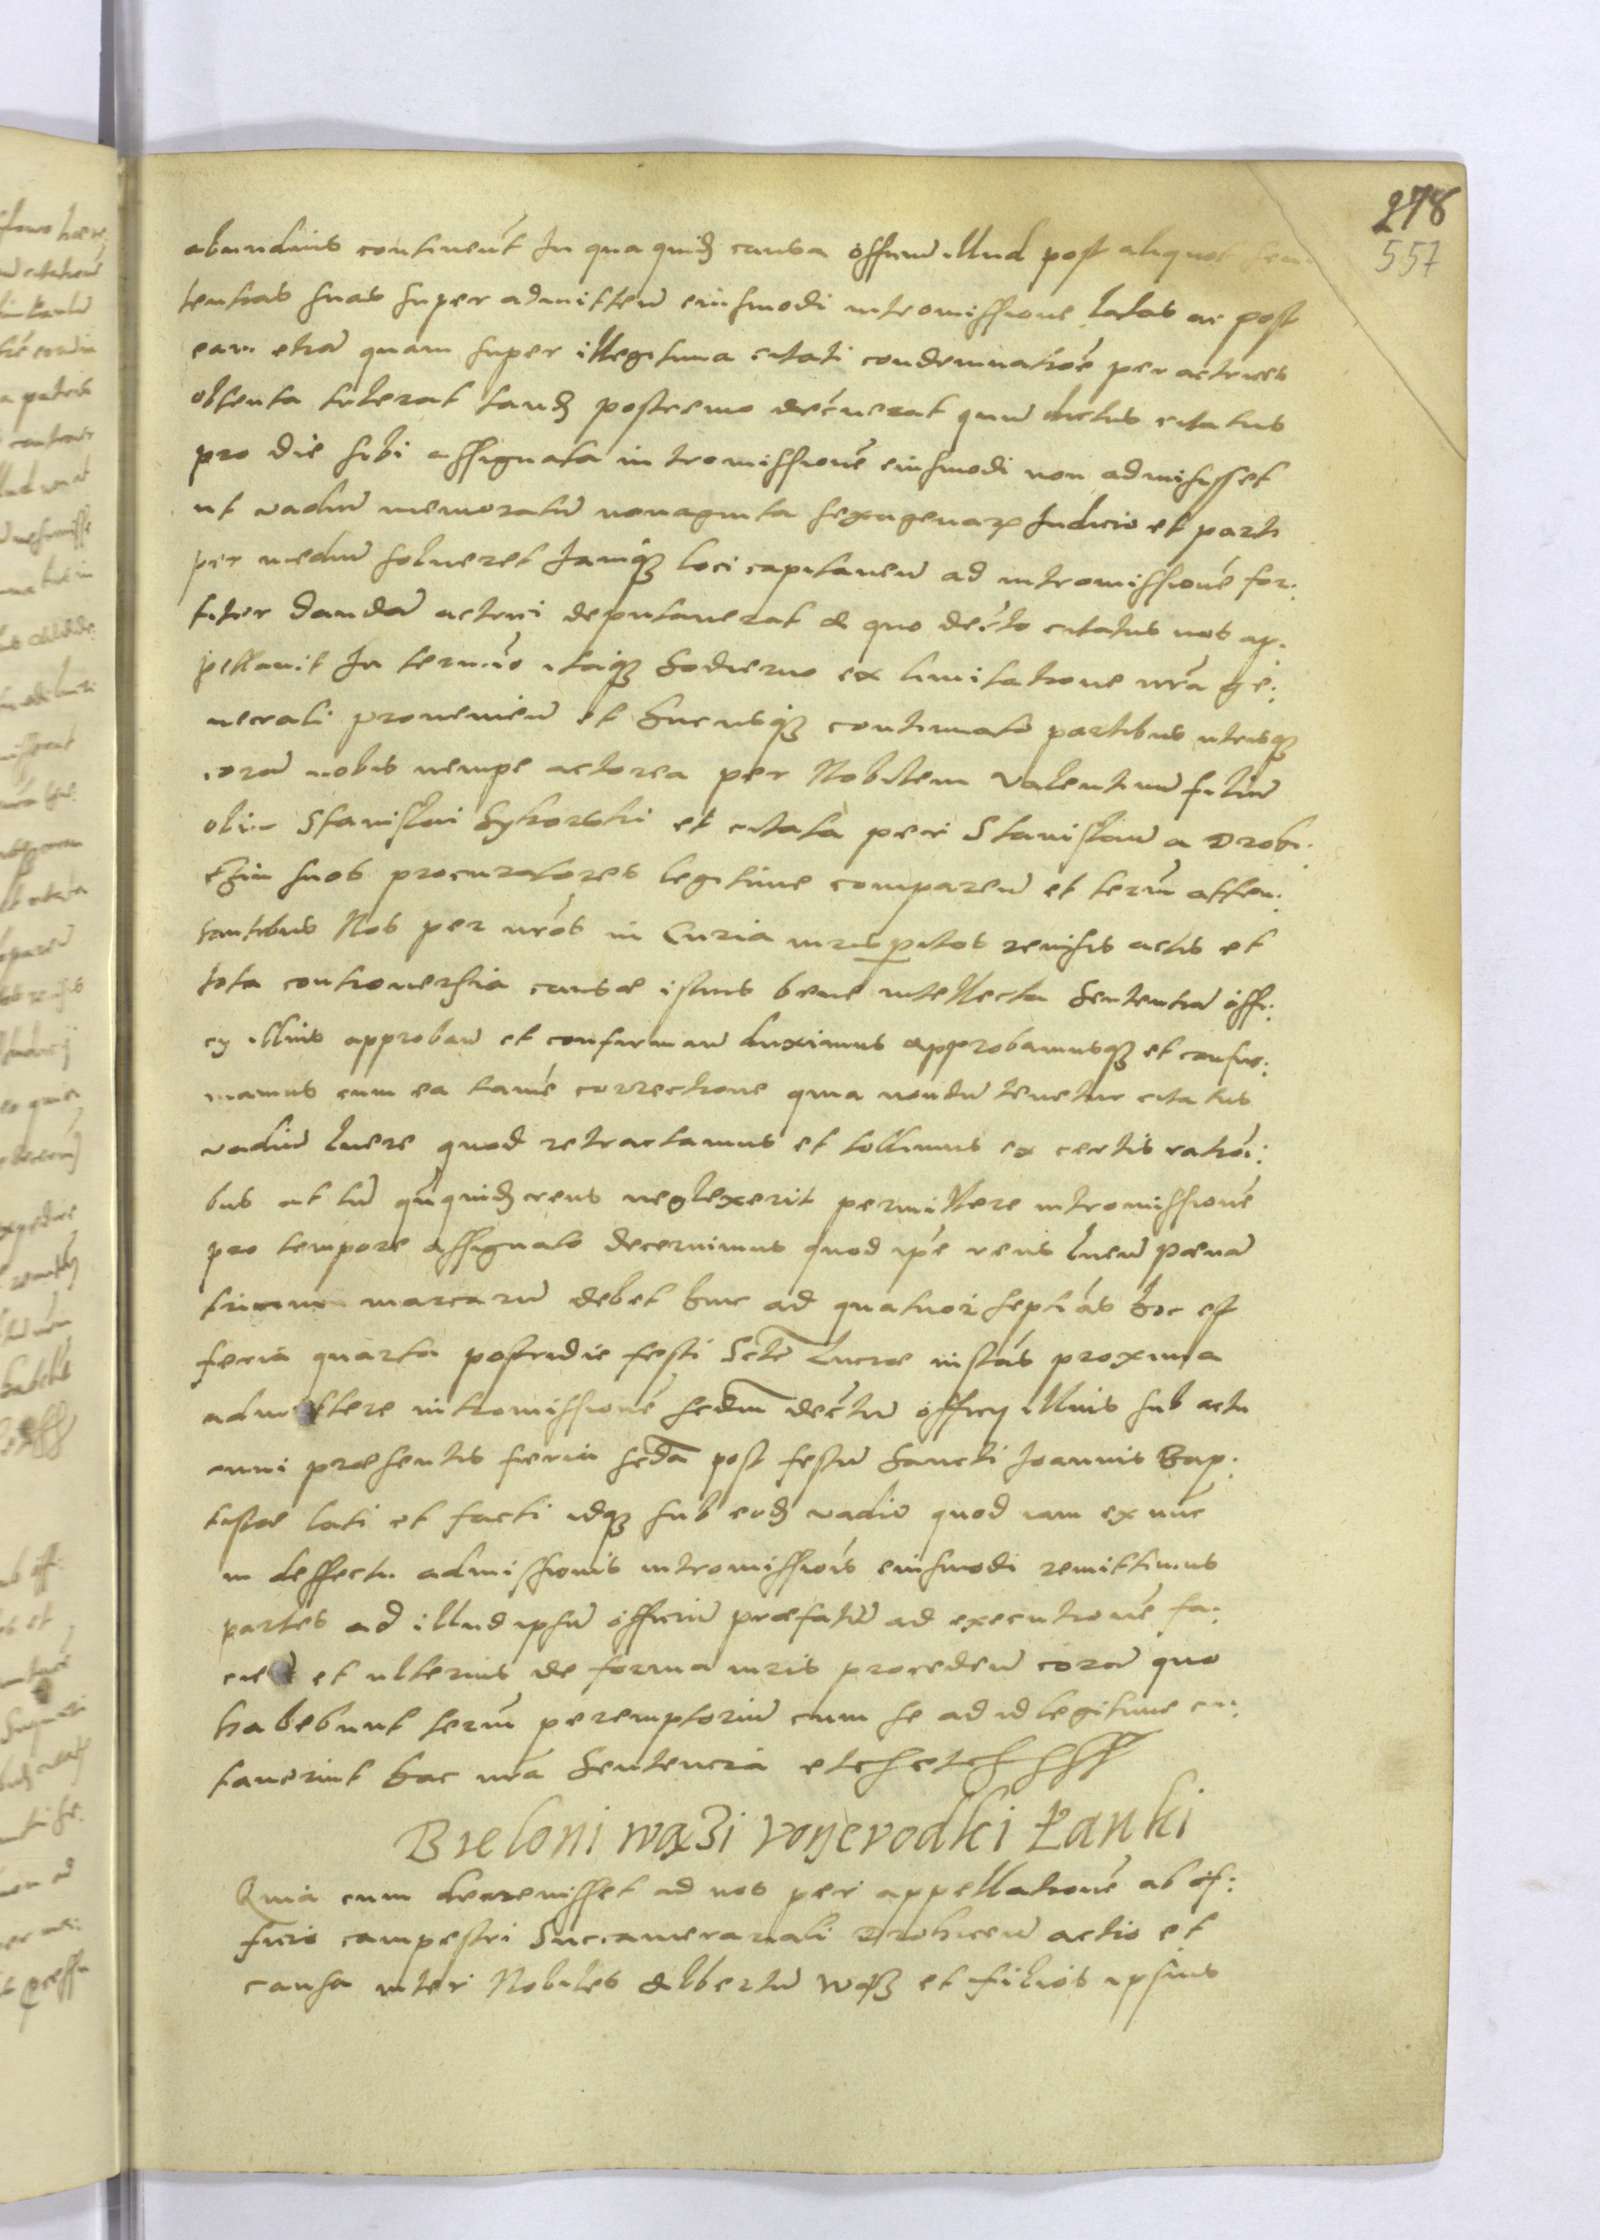 278
557
abundius continent In qua quid causa offium illud post aliquot sen
tentias suas super admitten eiusmodi intromissione latas ac post
eam etia quam super illegitima citati condemnatioe per actrices
obtenta tulerat tand postremo decreuerat quum dictus citatus
pro die sibi assignata intromissione eiusmodi non admisisset
ut vadiu memoratu nonaginta sexagenar Iudicio et parti
per mediu solueret Iamq loci capitaneu ad intromissione for:
titer danda actrici deputauerat A quo decto citatus nos ap:
pellauit In termio itaq hodierno ex limitatione nra ge:
nerali proueni en et hucusq continuato partibus utrisq
cora nobis nempe actorea per Nobilem Valentinu filiu
olim Stanislai Sykorski et citata per Stanislau a Drob:
suos procuratores legitime comparen et termi atten:
tantibus Nos per nros in Curia iurisperitos reuisis actis et
tota controuersia causae istius bene intellecta Sententia offi:
cij illius approban et confirman duximus approbamusq et confir:
mamus cum ea tame correctione quia nondu tenetur citatus
vadiu luere quod retractamus et tollimus ex certis ratioi:
bus at tu ququid reus neglexerit permittere intromissione
pro tempore assignato decernimus quod ipe reus luen paena
trium marcaru debet hinc ad quatuor septias hoc est
feria quarta postridie festi Scte Luciae instas proxima
admittere intromissione scdm dectu officij illius sub actu
anni praesentis feria scda post festu Sancti Ioannis Bap:
tistae lati et facti idq sub eod vadio quod iam ex nuc
in deffectu admissionis intromissiois eiusmodi remittimus
partes ad illud ipsu officiu praefatu ad executione fa:
cien et ulterius de forma iuris proceden cora quo
habebunt termi peremptoriu cum se ad id legitime ci:
tauerint hac nra Sentencia etc etc
Bieloni wazi voyevodki Łanki
Quia cum deuenisset ad nos per appellatione ab of:
ficio campestri Succamerariali Drohicen actio et
causa inter Nobiles Albertu Wąż et filios ipsius